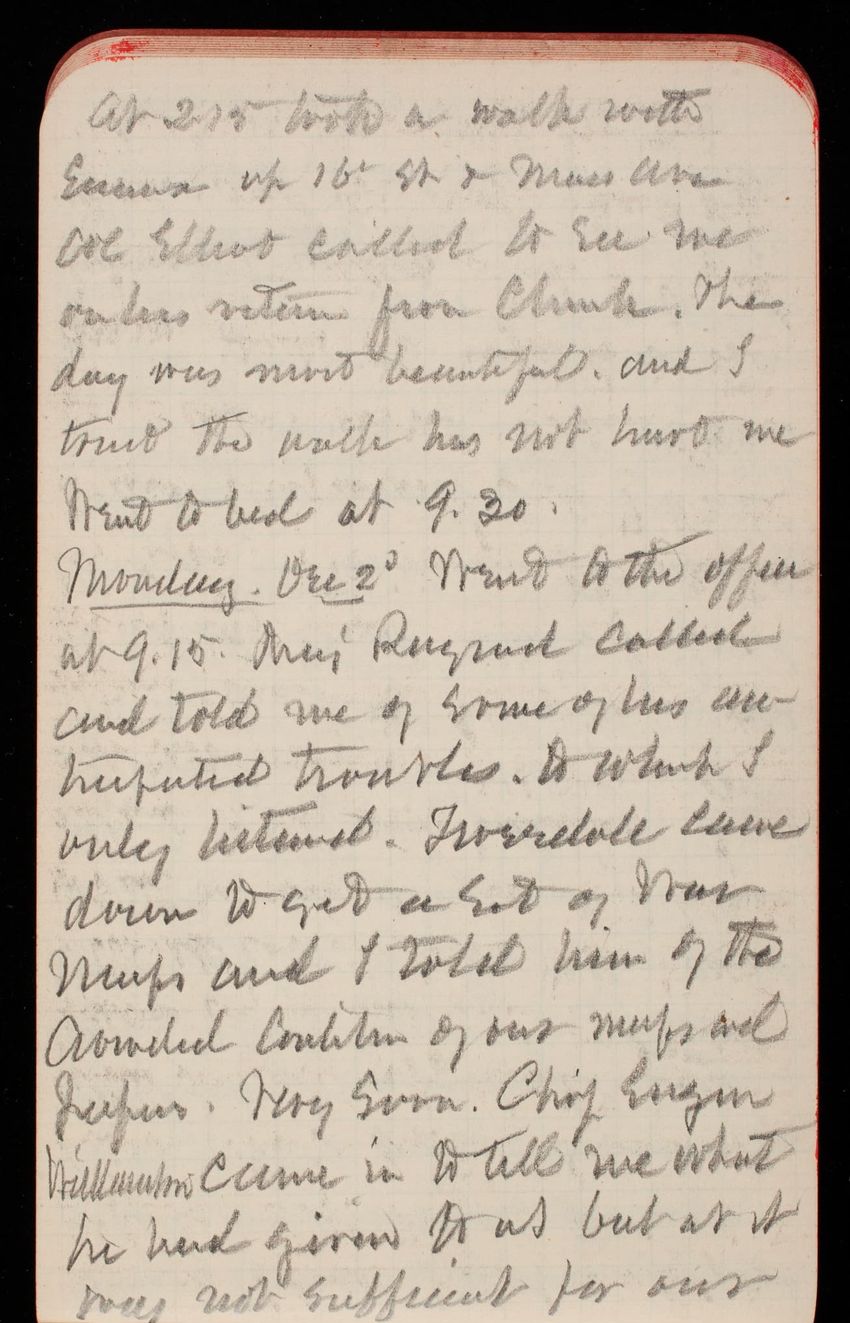 At 2.15 took a walk with
Emma up 16t St & Mass Ave
Col Elliot called to see me
on his return from Church. The
day was most beautiful. and I
trust the walk has not hurt me
Went to bed at 9.30.
Monday. Dec 2d Went to the office
at 9.15. Maj Raymond called
and told me of some of his
troubles. to which I
only listened. Truesdale came
down to get a set of War
Maps and I told him of the
Crowded Condition of our maps and
papers. Very soon. Chief Engin
Williamson came in to tell me what
he had given to us but as it
was not sufficient for our